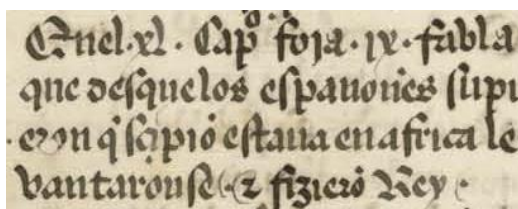 Enel·xl· Capº foja·ix·fabla
que desquelos espanones supi
eron q̃ scipiõ estaua en africa le
uantarõnse ⁊ fizierõ Rey·